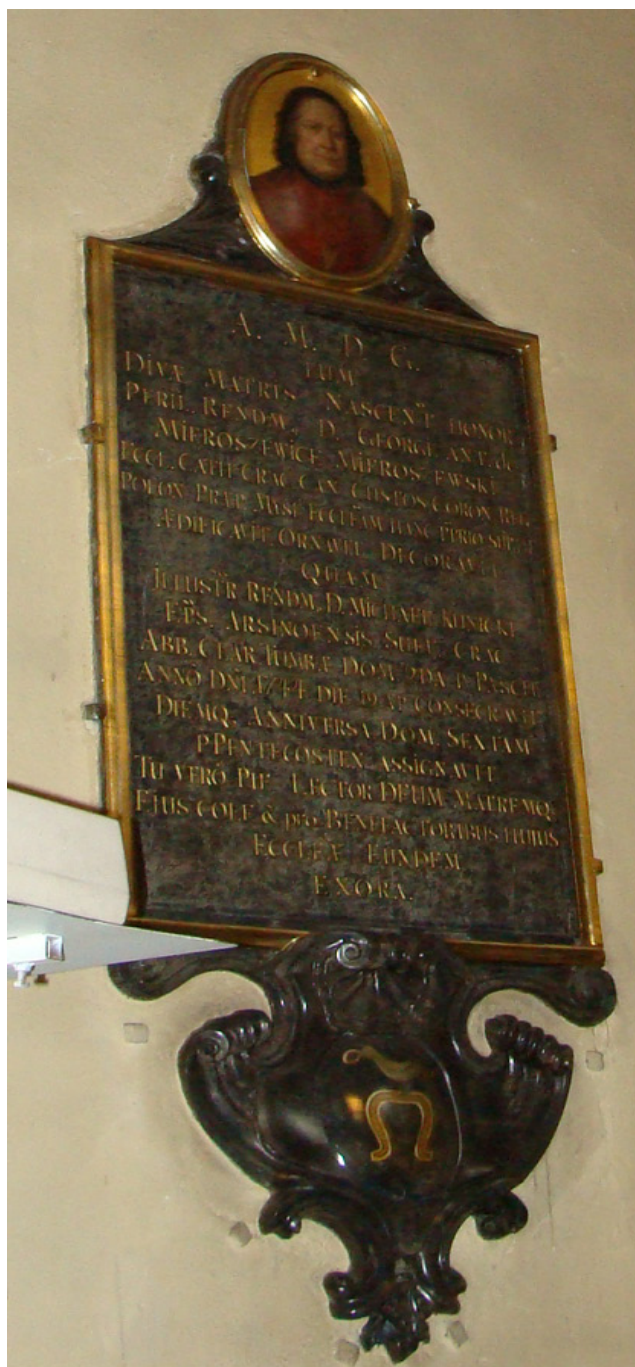 A. M. D. G.
TUM
DIVÆ MATRIS NASCENT HONORI
PERIL. RENDM. D. GEORGI ANT. de
MIEROSZEWICE MIEROSZEWSKI
ECCL. CATH. CRAC. CAN. CUSTOS CORON. REG.
POLON. PRÆP. ECCLEAM HANC PPRIO
ÆDIFICAVIT ORNAVIT DECORAVIT
QUAM
ILLUSTR RENDM. D. MICHAEL KUNICKI
EPS. ARSINOENSIS SUFF. CRAC
ABB. CLAR TUMBÆ DOM. 2DA P. PASCH.
ANNO DNI DIE CONSECRAVIT
DIEMQ. ANNIVERSA DOM. SEXTAM
PPENTECOSTEN ASSIGNAVIT
TU VERÒ PIE LECTOR DEUM MATREMQ.
EIUS COLE & pro BENEFACTORIBUS HUIUS
ECCLEÆ EUNDEM
EXORA.